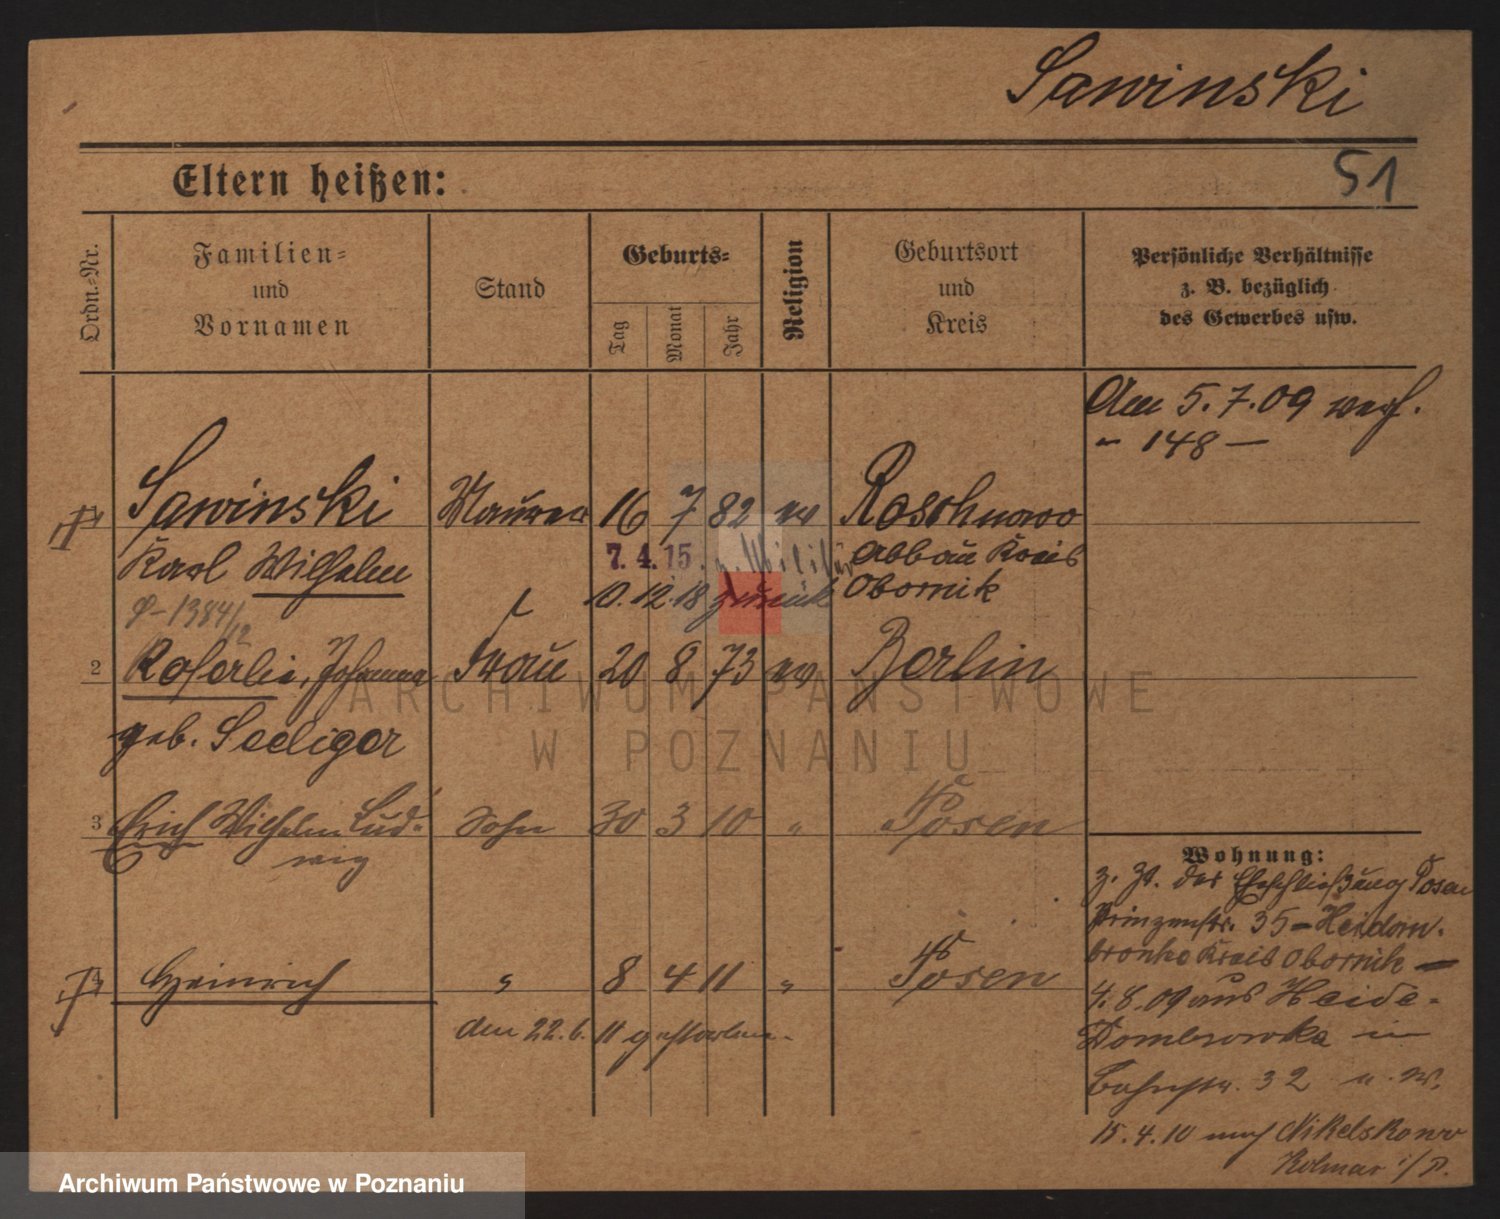 Sawinski
51
Eltern heißen:
Ordn.-Nr.
Familien-
und
Vornamen
Stand
Geburts-
Tag
Monat
Jahr
Religion
Geburtsort
und
Kreis
Persönliche Verhältnisse
z. B. bezüglich
des Gewerbes usw.
Am 5.7.09
" 148 —
Sawinski Maurer 16 7 82 ev Roschnowo
Karl Wilhelm 7. 4. 15. z. Militär Abbau Kreis
10.12.18 zurück Obornik
1384/12
2 Roserlie, Johanna Frau 20 8 73 ev Berlin
geb. Seeliger
3 Erich Wilhelm Lud- Sohn 30 3 10 " Posen
wig
Heinrich " 8 4 11 " Posen
den 22.6.11 gestorben.
Wohnung:
z. Zt. der Eheschließung Posen
Prinzenstr. 35 – Heidom-
bronke Kreis Obornik —
4.8.09 aus Heide-
Dombrowka in
32
15.4.10 nach Nikelskowo
Kolmar i/P.
ARCHIWUM PAŃSTWOWE
W POZNANIU
Archiwum Państwowe w Poznaniu